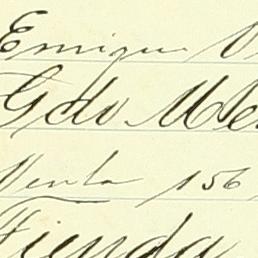 Enrique
Gdo Me
Venta 156
Tienda